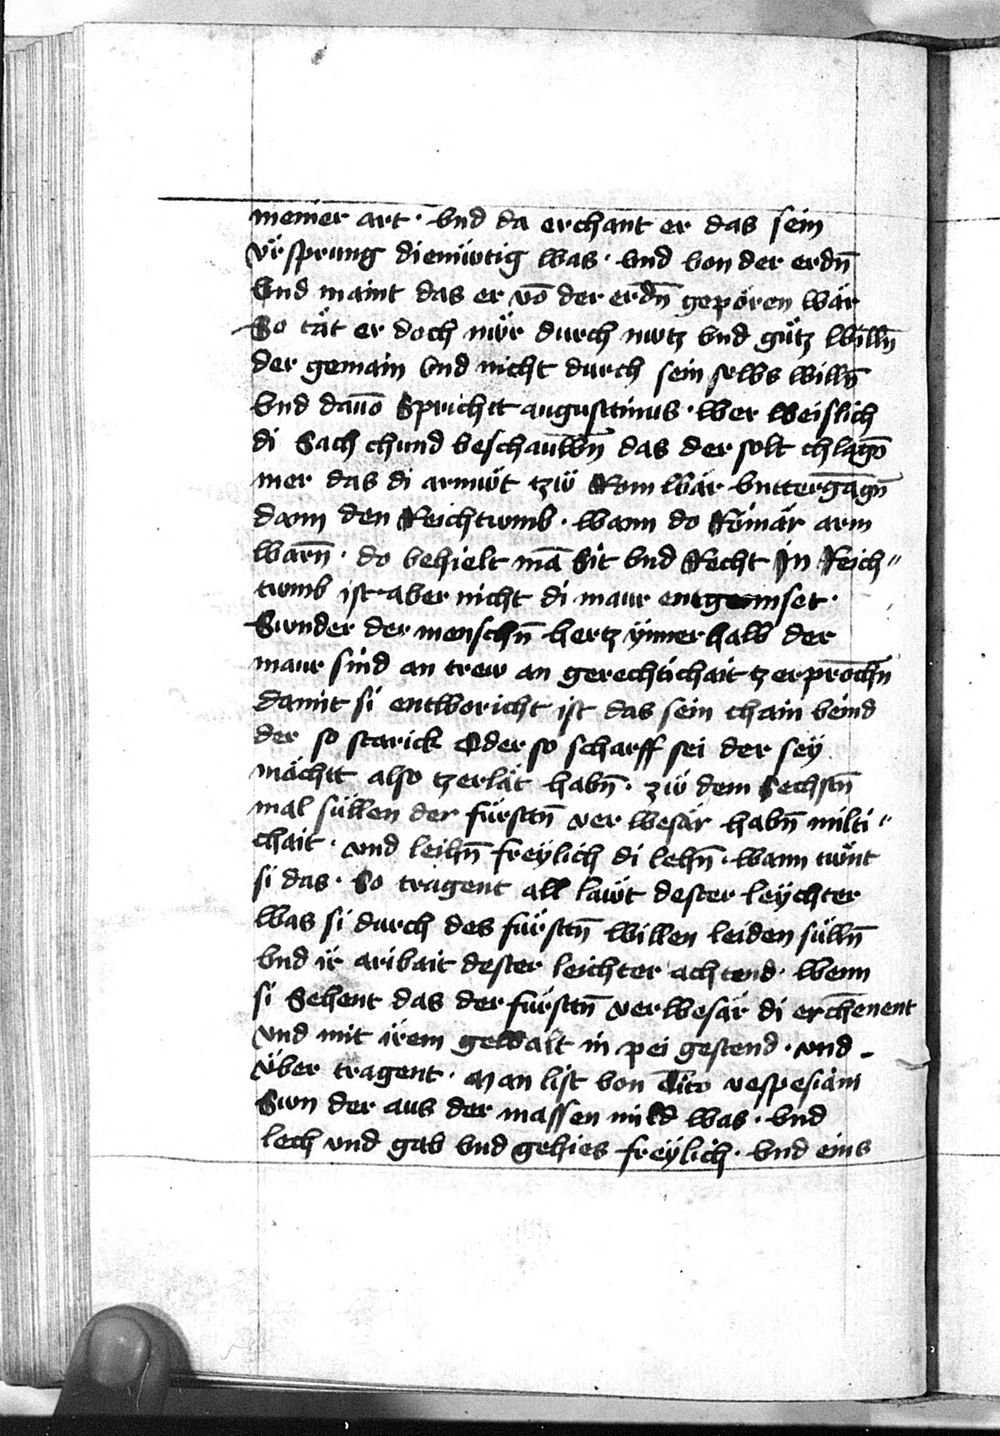 meiner art · vnd da erchant er das sein
vrsprung diemütig was · vnd von der erdn̄
Vnd maint das er vō der erdn̄ geporen wär
So tät er doch nwr durch nutz vnd gütz willn̄
der gemain vnd nicht durch sein selbs willn̄
Vnd dauō Sprichtt augustinus · wer weislich
di Sach chund beschauwn̄ das der solt chlagn̄
mer das di armüt tzü Rom wär vnttergāgn̄
dann den Reichtumb · wann do Römär arm
warn̄ · do behielt mā Sit vnd Recht In Reich〃
tumb ist aber nicht di maur
Sunder der menschn̄ hertz ynnerhalb der
maur sind an trew an gerechtichait tzerprochn̄
damit si entworicht ist das sein chain veind
der so starick Oder so scharff sei der sey
mächtt also tzerlät habn̄ · zü dem Sechstn̄
mal süllen der fürstn̄ verwesär habn̄ milti〃
chait · vnd leihn̄ freylich di lehn̄ · wann tünt
si das · So tragent all läwt dester leychter
was si durch des fürstn̄ willen leiden sülln̄
vnd ir aribait dester leichter achtend · wenn
si Sehent das der fürstn̄ verwesär di erchenent
vnd mit irem gewalt in pei gestend · vnd
über tragent · Man list von Tito vespesiani
Sun der aus der massen mild was · vnd
lech vnd gab vnd gehies freylich · vnd eins